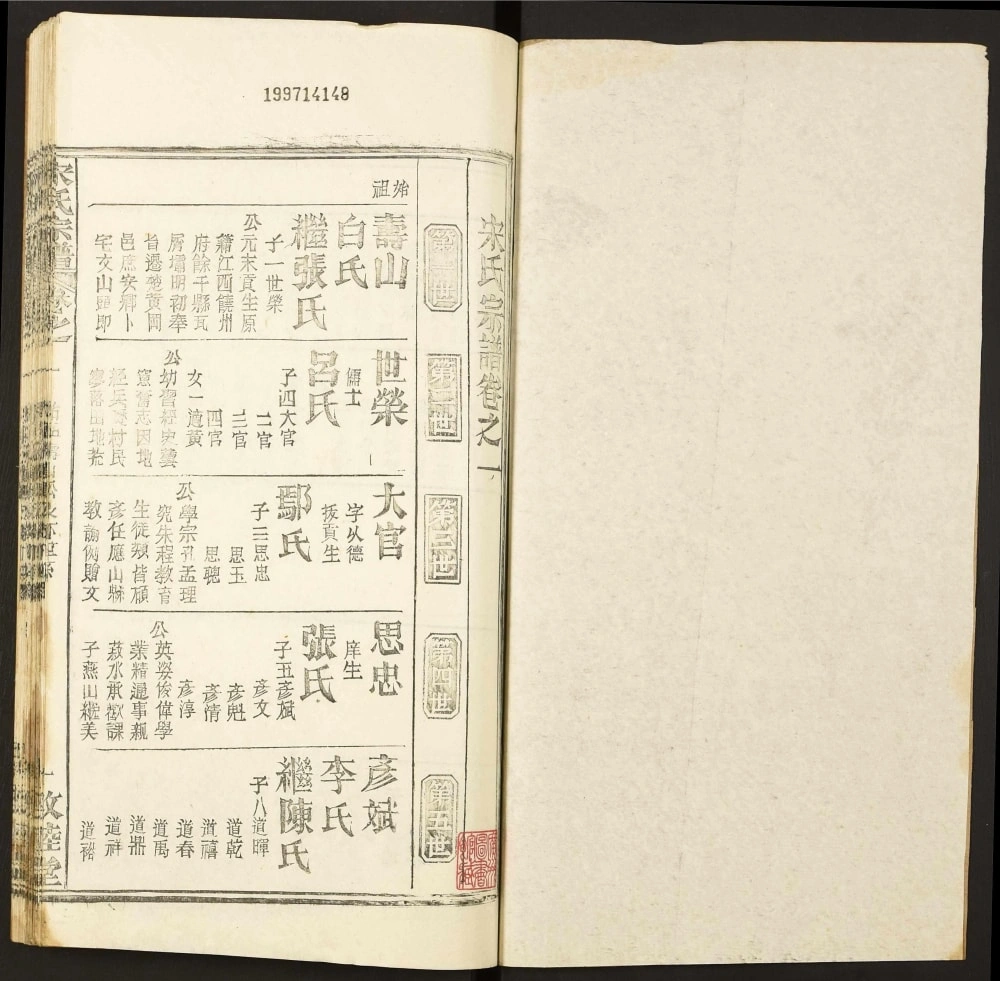 199714148
宋氏宗譜卷之一
第一世
第二世
第三世
第四世
第五世
始祖
壽山
白氏
繼張氏
子一世榮
公元末貢生原
籍江西饒州
府餘干縣瓦
屑壩明初奉
旨遷楚黃岡
邑庶安鄉卜
宅文山
世榮
儒士
呂氏
子四大官
二官
三官
四官
女一適黃
公幼習經史
奮志因地
大官
字从德
拔貢生
鄢氏
子三思忠
思玉
思聰
公學宗孔孟理
究朱程教育
生徒類皆碩
彥任應山縣
教諭例贈文
思忠
庠生
張氏
子五彥斌
彥文
彥魁
彥情
彥淳
公英姿俊偉學
業精邃事親
菽水承歡課
子燕山繼美
彥斌
李氏
繼陳氏
子八道暉
道乾
道禧
道春
道禹
道鼎
道祥
道裕
宋氏宗譜
卷之一
敦睦堂